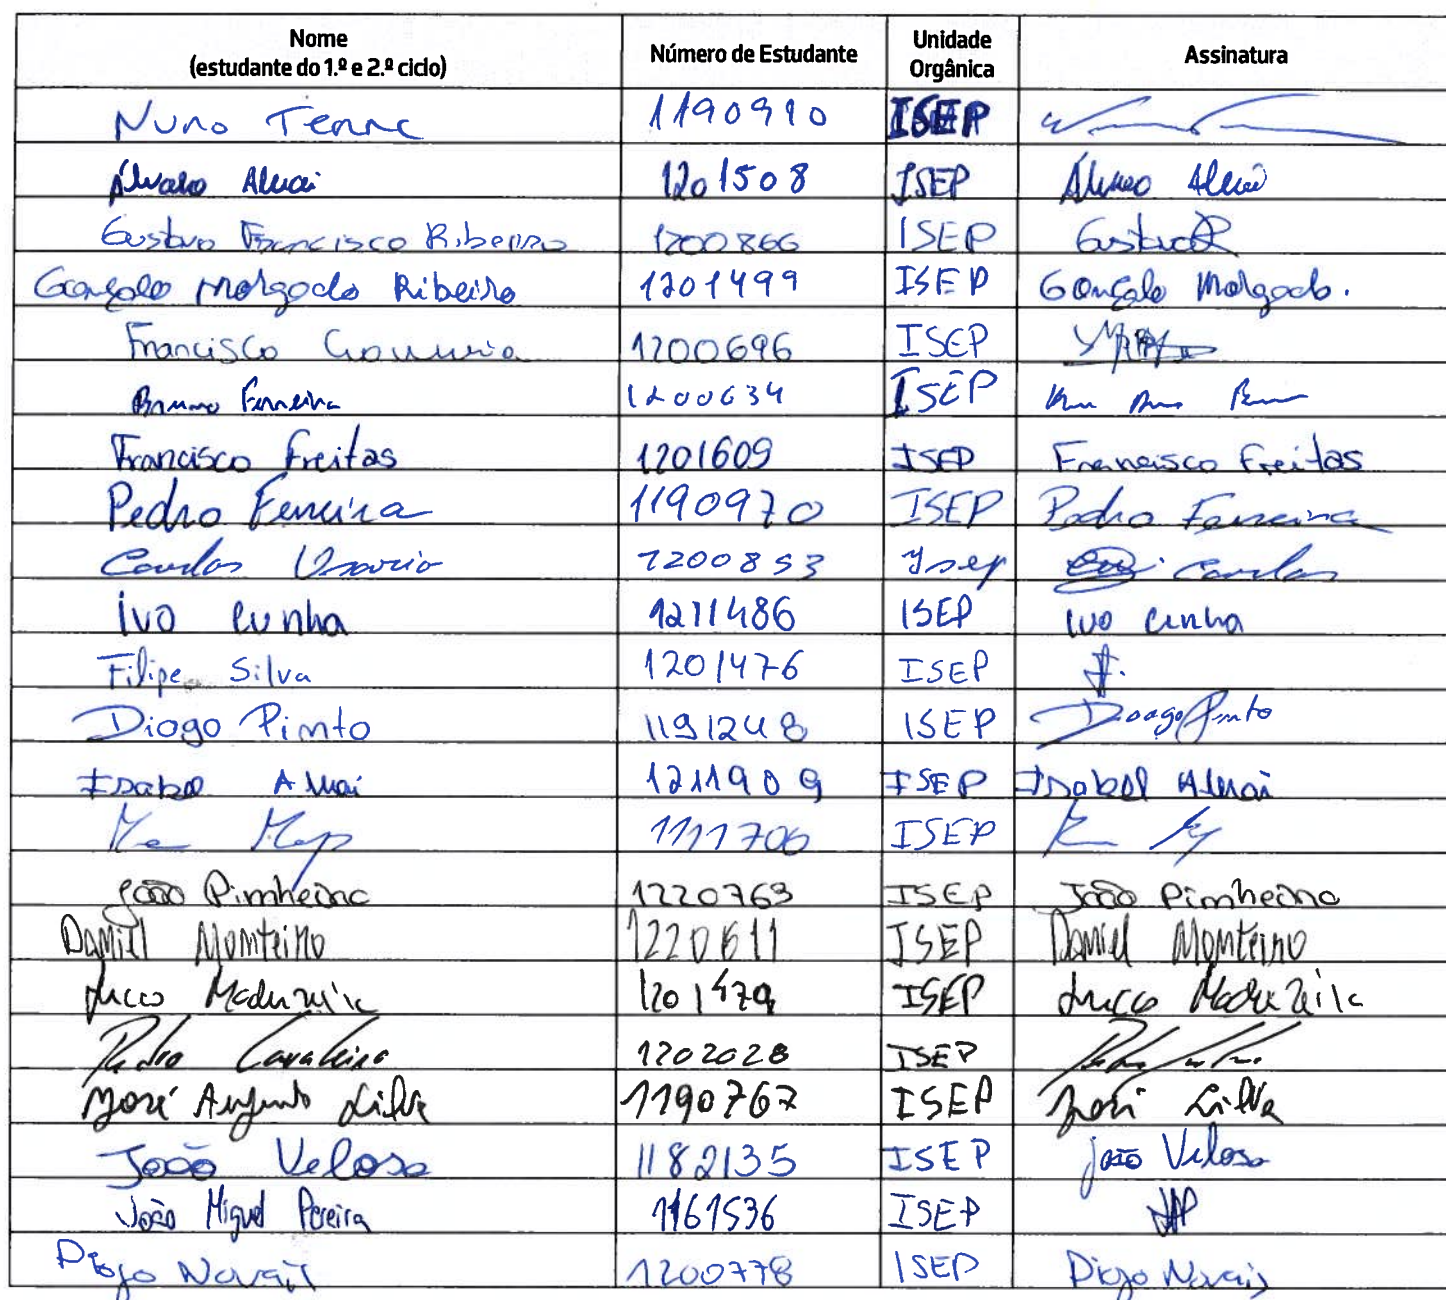 Nome Número de Estudante Unidade Assinatura
(estudante do 1.º e 2.º ciclo) Orgânica
Nuno 1190910 ISEP
Álvaro Aluai 1201508 ISEP Álvaro Aluai
Gustavo Francisco Ribeiro 1200866 ISEP Gustavo
Gonçalo Morgado Ribeiro 1201499 ISEP Gonçalo Morgado.
Francisco 1200696 ISEP
Bruno Ferreira 1200634 ISEP
Francisco Freitas 1201609 ISEP Francisco Freitas
Pedro Ferreira 1190970 ISEP Pedro Ferreira
Carlos 1200853 Isep Carlos
Ivo Cunha 1211486 ISEP Ivo Cunha
Filipe Silva 1201476 ISEP
Diogo Pinto 1191248 ISEP Diogo Pinto
Isabel Aluai 1211909 ISEP Isabel Aluai
1111706 ISEP
João Pinheiro 1220763 ISEP João Pinheiro
Daniel Monteiro 1220611 ISEP Daniel Monteiro
1201479 ISEP
Pedro Cavaleiro 1202028 ISEP
José Augusto Silva 1190767 ISEP José Silva
João Veloso 1182135 ISEP João Veloso
João Miguel Pereira 1161536 ISEP JMP
Diogo Novais 1200778 ISEP Diogo Novais